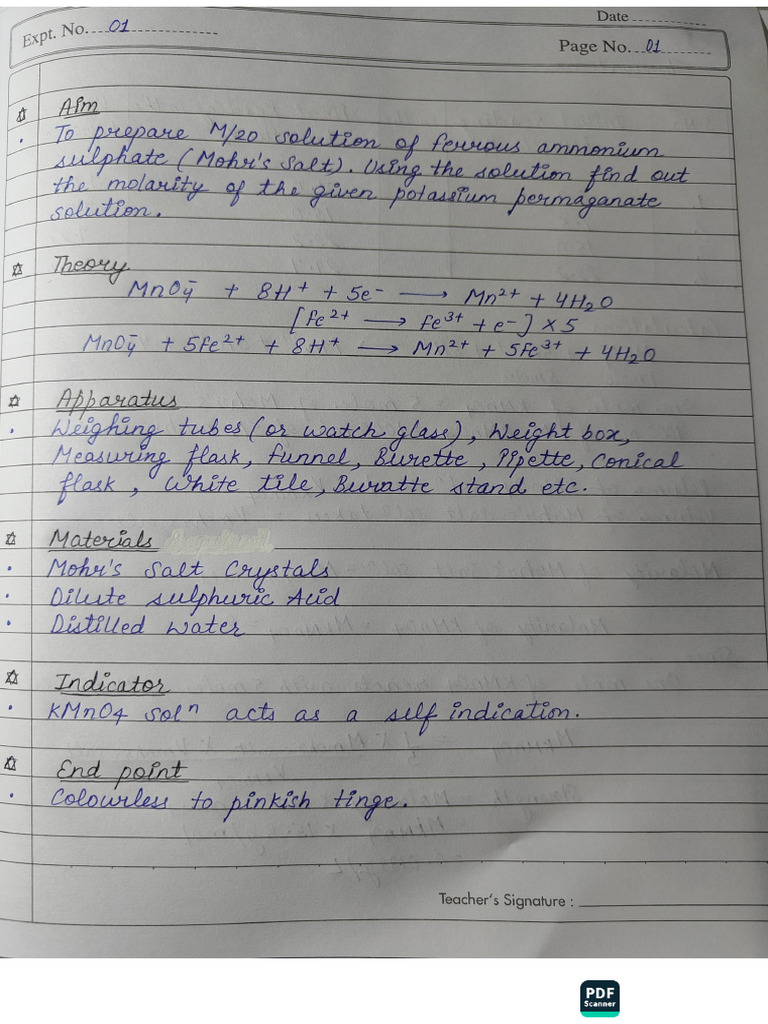 Expt. No. 01
Date
Page No. 01
Aim
To prepare M/20 solution of ferrous ammonium
sulphate (Mohr's Salt). Using the solution find out
the molarity of the given potassium permaganate
solution.
Theory
MnO₄⁻ + 8H⁺ + 5e⁻ ⟶ Mn²⁺ + 4H₂O
[Fe²⁺ ⟶ Fe³⁺ + e⁻] × 5
MnO₄⁻ + 5Fe²⁺ + 8H⁺ ⟶ Mn²⁺ + 5Fe³⁺ + 4H₂O
Apparatus
• Weighing tubes (or watch glass), Weight box,
Measuring flask, funnel, Burette, Pipette, Conical
flask, White tile, Buratte stand etc.
Materials
• Mohr's Salt Crystals
• Dilute sulphuric Acid
• Distilled water
Indicator
• KMnO4 solⁿ acts as a self indication.
End point
• Colourless to pinkish tinge.
Teacher's Signature :
PDF
Scanner